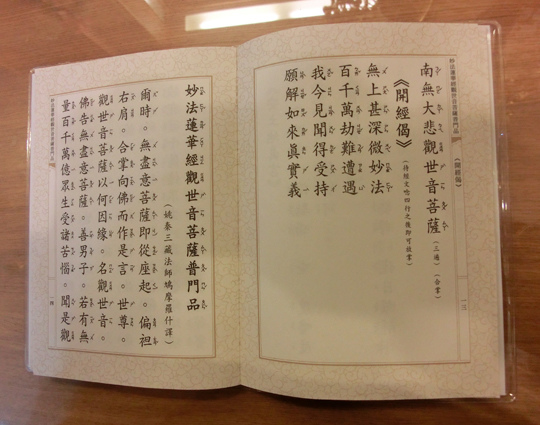 妙法蓮華經觀世音菩薩普門品
《開經偈》
南無大悲觀世音菩薩
（三遍）（合掌）
《開經偈》
（待經文唸四行之後即可放掌）
無上甚深微妙法
百千萬劫難遭遇
我今見聞得受持
願解如來真實義
妙法蓮華經觀世音菩薩普門品
（姚秦三藏法師鳩摩羅什譯）
爾時。無盡意菩薩即從座起。偏袒
右肩。合掌向佛而作是言。世尊。
觀世音菩薩以何因緣。名觀世音。
佛告無盡意菩薩。善男子。若有無
量百千萬億眾生受諸苦惱。聞是觀
妙法蓮華經觀世音菩薩普門品